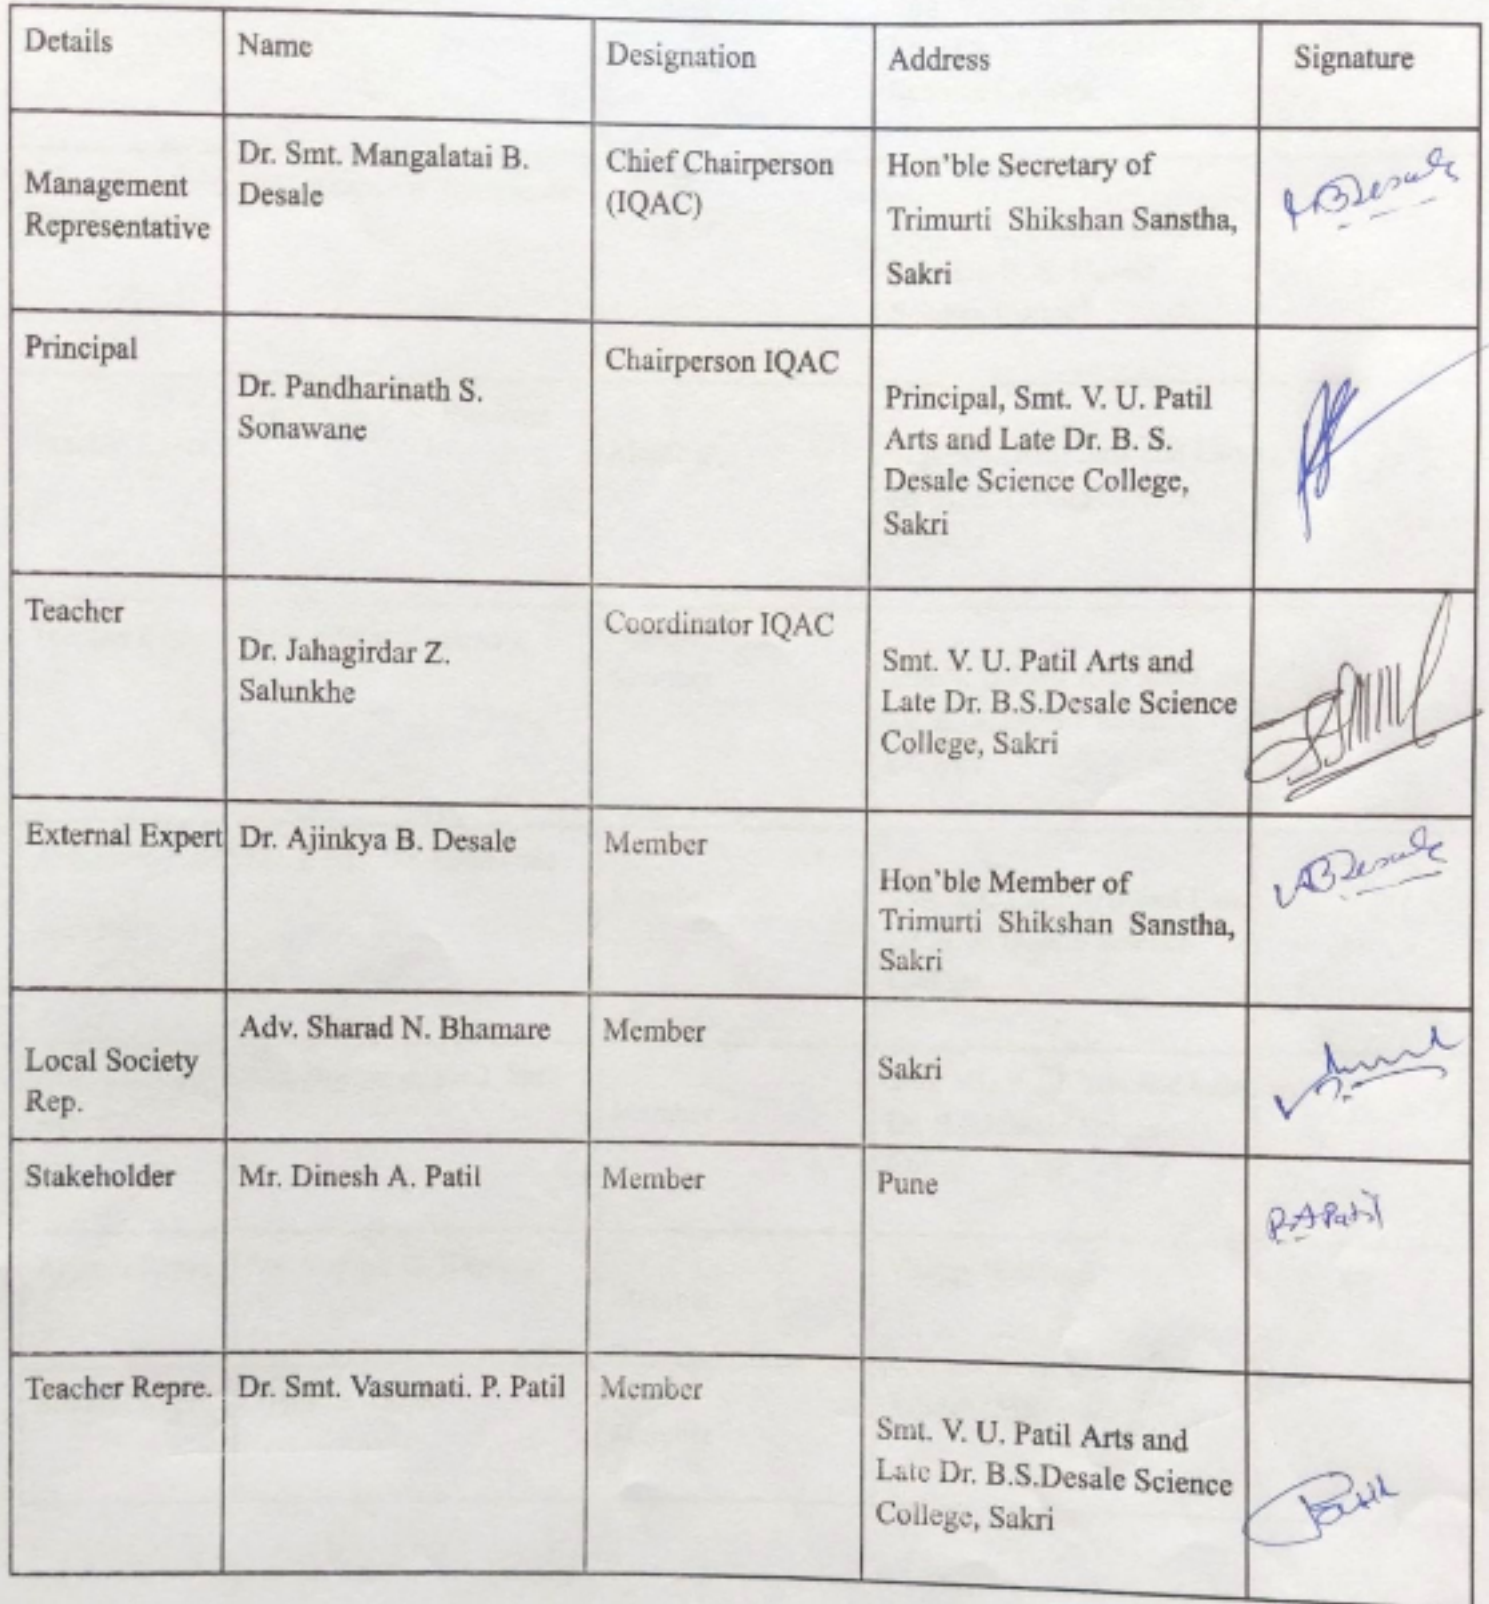 Details
Name
Designation
Address
Signature
Management
Representative
Dr. Smt. Mangalatai B.
Desale
Chief Chairperson
(IQAC)
Hon'ble Secretary of
Trimurti Shikshan Sanstha,
Sakri
Principal
Dr. Pandharinath S.
Sonawane
Chairperson IQAC
Principal, Smt. V. U. Patil
Arts and Late Dr. B. S.
Desale Science College,
Sakri
Teacher
Dr. Jahagirdar Z.
Salunkhe
Coordinator IQAC
Smt. V. U. Patil Arts and
Late Dr. B.S.Desale Science
College, Sakri
External Expert
Dr. Ajinkya B. Desale
Member
Hon'ble Member of
Trimurti Shikshan Sanstha,
Sakri
Local Society
Rep.
Adv. Sharad N. Bhamare
Member
Sakri
Stakeholder
Mr. Dinesh A. Patil
Member
Pune
Teacher Repre.
Dr. Smt. Vasumati. P. Patil
Member
Smt. V. U. Patil Arts and
Late Dr. B.S.Desale Science
College, Sakri